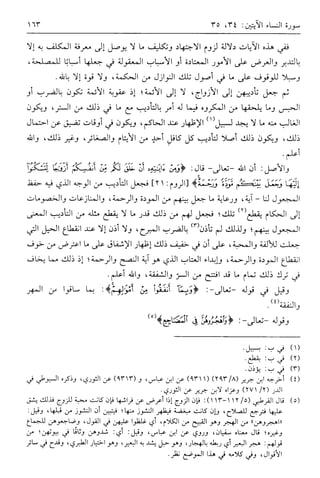 سورة النساء الآيتين: ٣٤، ٣٥
١٦٣
ففي هذه الآيات دلالة لزوم الاجتهاد وتكليف ما لا يوصل إلى معرفة المكلف به إلا
بالتدبر والعرض على الأمور المعتادة أو الأسباب المعقولة في جعلها أسبابًا للمصلحة،
وسبلا للوقوف على ما في أصول تلك النوازل من الحكمة، ولا قوة إلا بالله.
ثم جعل تأديبهن إلى الأزواج، لا إلى الأئمة؛ إذ عقوبة الأئمة تكون بالضرب أو
الحبس وما يلحقها من المكروه فيما له أمر بالتأديب مع ما في ذلك من الستر، ويكون
الغالب منه ما لا يجد لسبيل(١) الإظهار عند الحاكم، ويكون في أوقات تضيق عن احتمال
ذلك، ويكون ذلك أصلا لتأديب كل كافل أحدٍ من الأيتام والصغائر، وغير ذلك، والله
أعلم.
والأصل: أن الله -تعالى- قال: ﴿وَمِنْ ءَايَٰتِهِۦٓ أَنْ خَلَقَ لَكُم مِّنْ أَنفُسِكُمْ أَزْوَٰجًا لِّتَسْكُنُوٓا۟
إِلَيْهَا وَجَعَلَ بَيْنَكُم مَّوَدَّةً وَرَحْمَةً﴾ [الروم: ٢١] فجعل التأديب من الوجه الذي فيه حفظ
المجعول لنا - آية، ورعاية ما جعل بينهم من المودة والرحمة، والمنازعات والخصومات
إلى الحكام يقطع(٢) تلك؛ فجعل لهم من ذلك قدر ما لا يقطع مثله من التأديب المعنى
المجعول بينهم؛ ولذلك لم تأذن(٣) بالضرب المبرح، ولا أذن إلا عند انقطاع الحيل التي
جعلت للألفة والمحبة، على أن في خفيف ذلك إظهار الإشفاق على ما اعترض من خوف
انقطاع المودة والرحمة، وإبداء العتاب الذي هو آية النصح والرحمة؛ إذ ذلك مما يخاف
في ترك ذلك تمام ما قد افتتح من الستر والشفقة، والله أعلم.
وقيل في قوله -تعالى-: ﴿وَبِمَآ أَنفَقُوا۟ مِنْ أَمْوَٰلِهِمْ﴾: بما ساقوا من المهر
والنفقة(٤).
وقوله -تعالى-: ﴿وَٱهْجُرُوهُنَّ فِى ٱلْمَضَاجِعِ﴾(٥)
(١) في ب: بسبيل.
(٢) في ب: بقطع.
(٣) في ب: يؤذن.
(٤) أخرجه ابن جرير (٢٩٣/٨) (٩٣١١) عن ابن عباس، و (٩٣١٣) عن الثوري، وذكره السيوطي في
الدر (٢٧١/٢) وعزاه لابن جرير عن الثوري.
(٥) قال القرطبي (١١٢/٥-١١٣): فإن الزوج إذا أعرض عن فراشها فإن كانت محبة للزوج فذلك يشق
عليها فترجع للصلاح، وإن كانت مبغضة فيظهر النشوز منها؛ فيتبين أن النشوز من قبلها، وقيل:
«اهجروهن» من الهجر وهو القبيح من الكلام، أي غلظوا عليهن في القول، وضاجعوهن للجماع
وغيره؛ قال معناه سفيان، وروي عن ابن عباس، وقيل: أي: شدوهن وثاقًا في بيوتهن؛ من
قولهم: هجر البعير أي ربطه بالهجار، وهو حبل يشد به البعير، وهو اختيار الطبري، وقدح في سائر
الأقوال، وفي كلامه في هذا الموضع نظر.